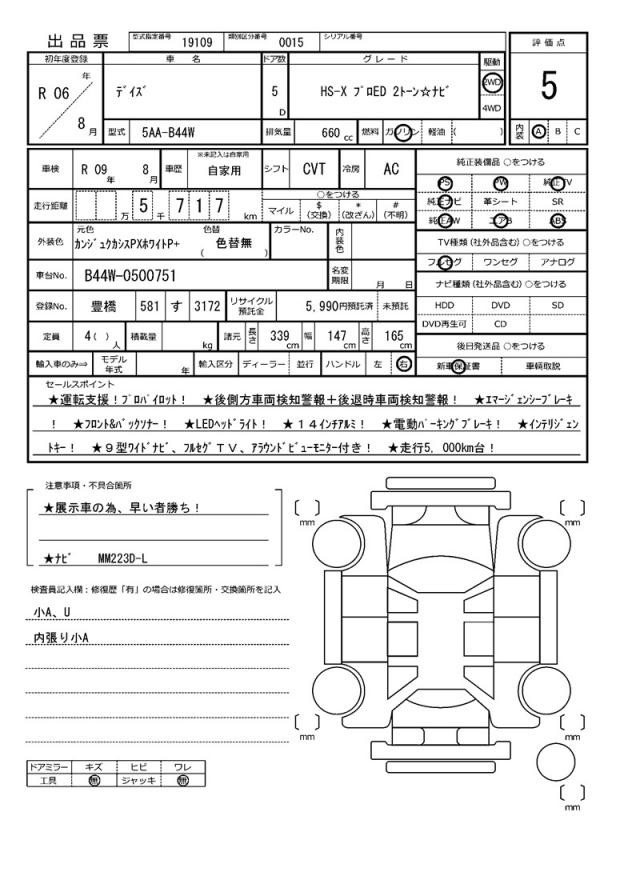 出品票 型式指定番号 19109 類別区分番号 0015 シリアル番号
初年度登録 車名 ドア数 グレード 駆動 評価点
R 06 年 8 月 ﾃﾞｲｽﾞ 5 D HS-X ﾌﾟﾛED 2トーン☆ﾅﾋﾞ 2WD 4WD 5
型式 5AA-B44W 排気量 660 cc 燃料 ガソリン 軽油 ( ) 内装 A B C
車検 R 09 年 8 月 車歴 ※未記入は自家用 自家用 シフト CVT 冷房 AC 純正装備品 ○をつける
PS PW 純正TV
走行距離 万 5 千 7 1 7 km ○をつける
マイル $ (交換) * (改ざん) # (不明)
純正ナビ 革シート SR
純正AW エアB ABS
外装色 元色 ｶﾝｼﾞｭｸｶｼｽPXﾎﾜｲﾄP+ 色替 ( 色替無 ) カラーNo. 内装色
TV種類 (社外品含む) ○をつける
フルセグ ワンセグ アナログ
車台No. B44W-0500751 名変期限 月 日
ナビ種類 (社外品含む) ○をつける
登録No. 豊橋 581 す 3172 リサイクル預託金 5,990円預託済 未預託
HDD DVD SD
DVD再生可 CD
定員 4 ( ) 人 積載量 kg 諸元 長さ 339 cm 幅 147 cm 高さ 165 cm
後日発送品 ○をつける
輸入車のみ⇒ モデル年式 年 輸入区分 ディーラー 並行 ハンドル 左 右
新車保証書 車輌取説
セールスポイント
★運転支援！ﾌﾟﾛﾊﾟｲﾛｯﾄ！ ★後側方車両検知警報＋後退時車両検知警報！ ★ｴﾏｰｼﾞｪﾝｼｰﾌﾞﾚｰｷ
！ ★ﾌﾛﾝﾄ&ﾊﾞｯｸｿﾅｰ！ ★LEDﾍｯﾄﾞﾗｲﾄ！ ★１４ｲﾝﾁｱﾙﾐ！ ★電動ﾊﾟｰｷﾝｸﾞﾌﾞﾚｰｷ！ ★ｲﾝﾃﾘｼﾞｪﾝ
ﾄｷｰ！ ★９型ﾜｲﾄﾞﾅﾋﾞ、ﾌﾙｾｸﾞＴＶ、ｱﾗｳﾝﾄﾞﾋﾞｭｰﾓﾆﾀｰ付き！ ★走行5，000km台！
注意事項・不具合箇所
★展示車の為、早い者勝ち！
★ﾅﾋﾞ MM223D-L
検査員記入欄：修復歴「有」の場合は修復箇所・交換箇所を記入
小A、U
内張り小A
ドアミラー キズ ヒビ ワレ
工具 無 ジャッキ 無
mm
mm
mm
mm
mm